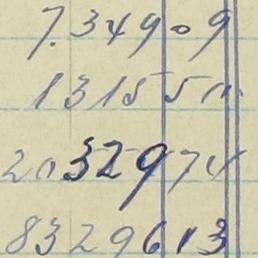 7.349 09
1315 5
20329 74
8329613